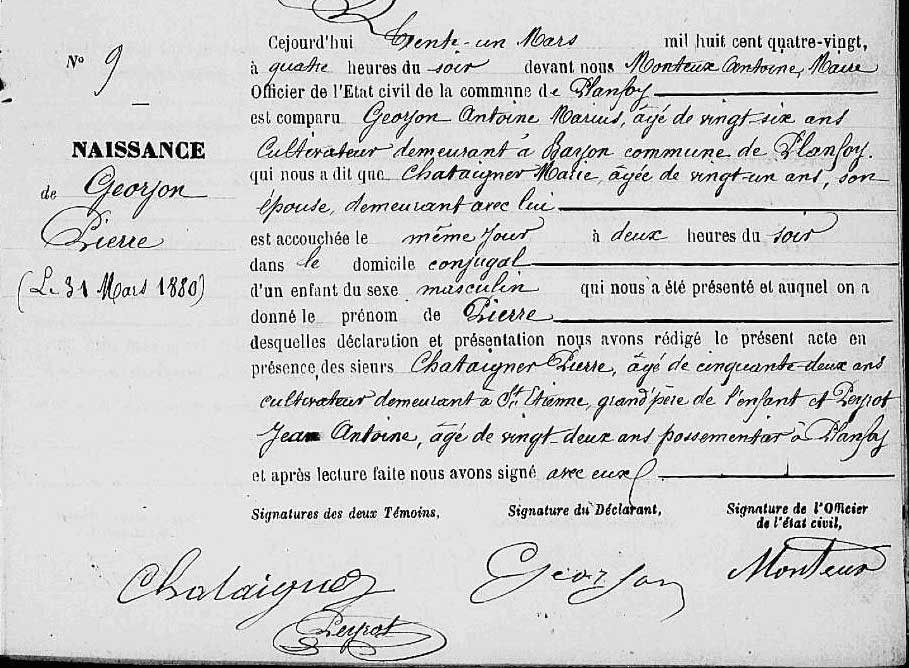 N° 9
NAISSANCE
de Georjon
Pierre
(Le 31 Mars 1880)
Cejourd'hui Trente-un Mars mil huit cent quatre-vingt,
à quatre heures du soir devant nous Monteux Antoine, Maire
Officier de l'Etat civil de la commune de Planfoy
est comparu Georjon Antoine Marius, âgé de vingt-six ans
Cultivateur demeurant à Barjon commune de Planfoy.
qui nous a dit que Chataigner Marie, âgée de vingt-un ans, son
épouse, demeurant avec lui
est accouchée le même jour à deux heures du soir
dans le domicile conjugal
d'un enfant du sexe masculin qui nous a été présenté et auquel on a
donné le prénom de Pierre
desquelles déclaration et présentation nous avons rédigé le présent acte en
présence des sieurs Chataigner Pierre, âgé de cinquante-deux ans
cultivateur demeurant à St Etienne, grand'père de l'enfant et Peyrot
Jean Antoine, âgé de vingt-deux ans possementier à Planfoy
et après lecture faite nous avons signé avec eux
Signatures des deux Témoins, Signature du Déclarant, Signature de l'Officier
de l'état civil,
Chataigner Georjon Monteux
Peyrot